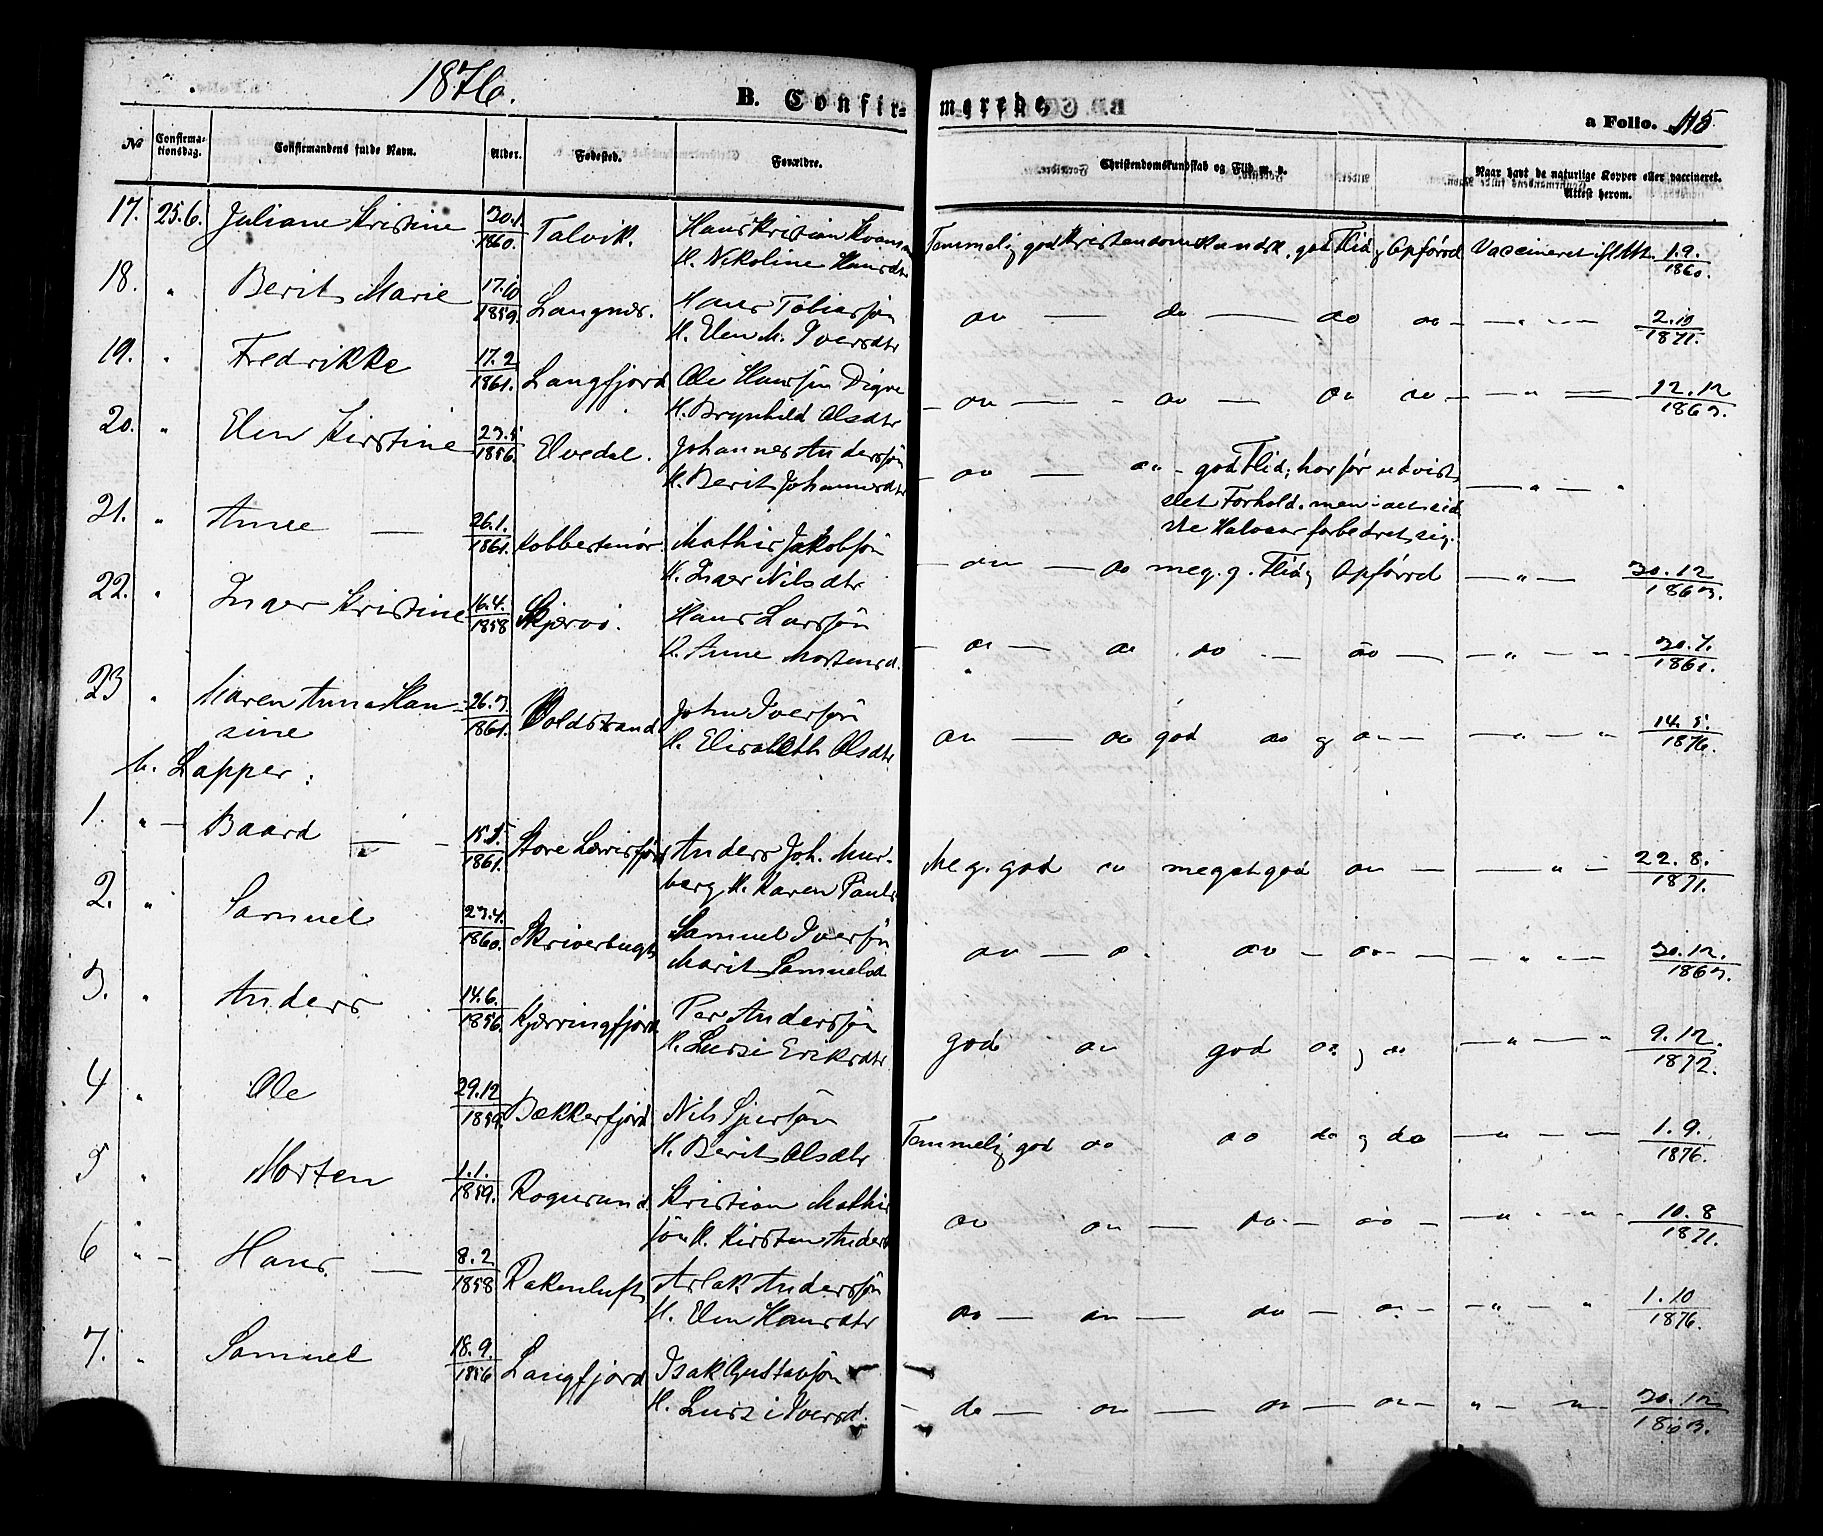 1876.
B. Confir-
merede
a Folio. 115
No
Confirmationsdag.
Confirmandens fulde Navn.
Alder.
Fødested.
Forældre.
Christendomskundskab og Flid m. v.
Naar havt de naturlige Kopper eller vaccineret. Attest herom.
17. 25.6. Juliane Kristine 30.1 1860. Talvik. Hans Kristian
H. Nikoline Hansdtr Temmelig god Kristendomskundsk. god Flid og Opførsel Vaccineret ifl. Att. 1.9. 1860.
18. " Berit Marie 17.10 1859. Langnes. Hans Tobiassøn
H. Elen M. Iversdtr do — do — do do — " — 2.10 1871.
19. " Fredrikke 17.2 1861. Langfjord Ole Hanssøn Digre
H. Brynhild Olsdtr — do — do — do do — " — 12.12 1863.
20. " Elen Kirstine 23.5 1856. Elvedal. Johannes Anderssøn
H. Berit Johannesdtr — do — do - god Flid; har før udvist
slet Forhold, men i det sid
ste Halvaar forbedret sig. — " — "
21. " Anne — 26.1. 1861. Kobbernør. Mathis Jakobsøn
H. Inger Nilsdtr — do — do meg. g. Flid og Opførsel — " — 30.12 1863.
22. " Inger Kristine 16.4. 1858 Skjervø. Hans Larssøn
H. Anne Mortensd. — do — do do — do — " — 30.7. 1861.
23 " Maren Anna Han-
sine 26.3. 1861. Voldstrand John Iversøn
H. Elisabeth Olsdtr do — do god do og do — " — " 14.5. 1876.
b. Lapper:
1. " — Baard — 15.1. 1861. Store Lerrisfjord Anders Joh. Mur-
berg H. Karen Pauls. Meg. god do meget god do — " — 22.8. 1871.
2. " Samuel 23.4. 1860. Skriverbugt Samuel Iversøn
Marit Samuelsd do — do do — do — " — 30.12. 1863.
3. " Anders 14.6. 1856. Kjerringfjord Per Anderssøn
H. Lussi Eriksdtr god do god do og do — " — " 9.12. 1872.
4 " Ole 29.12 1859. Bekkerfjord Nils Sjursøn
H. Berit Olsdtr Temmelig god do do do og do — " — 1.9. 1876.
5 " Morten 1.1. 1859. Rognsund. Kristian Mathis
søn H. Kirsten Anders do do — do — do — " — " 10.8 1871.
6 " — Hans. — 8.2 1858 Rakenluft Aslak Anderssøn
H. Elen Hansdtr do — do — do — do — " — " 1.10 1876.
7. " Samuel 18.9. 1856 Langfjord Isak Gustavsøn
H. Lussi Iversd. — do — do — do — do — " — " 30.12 1863.